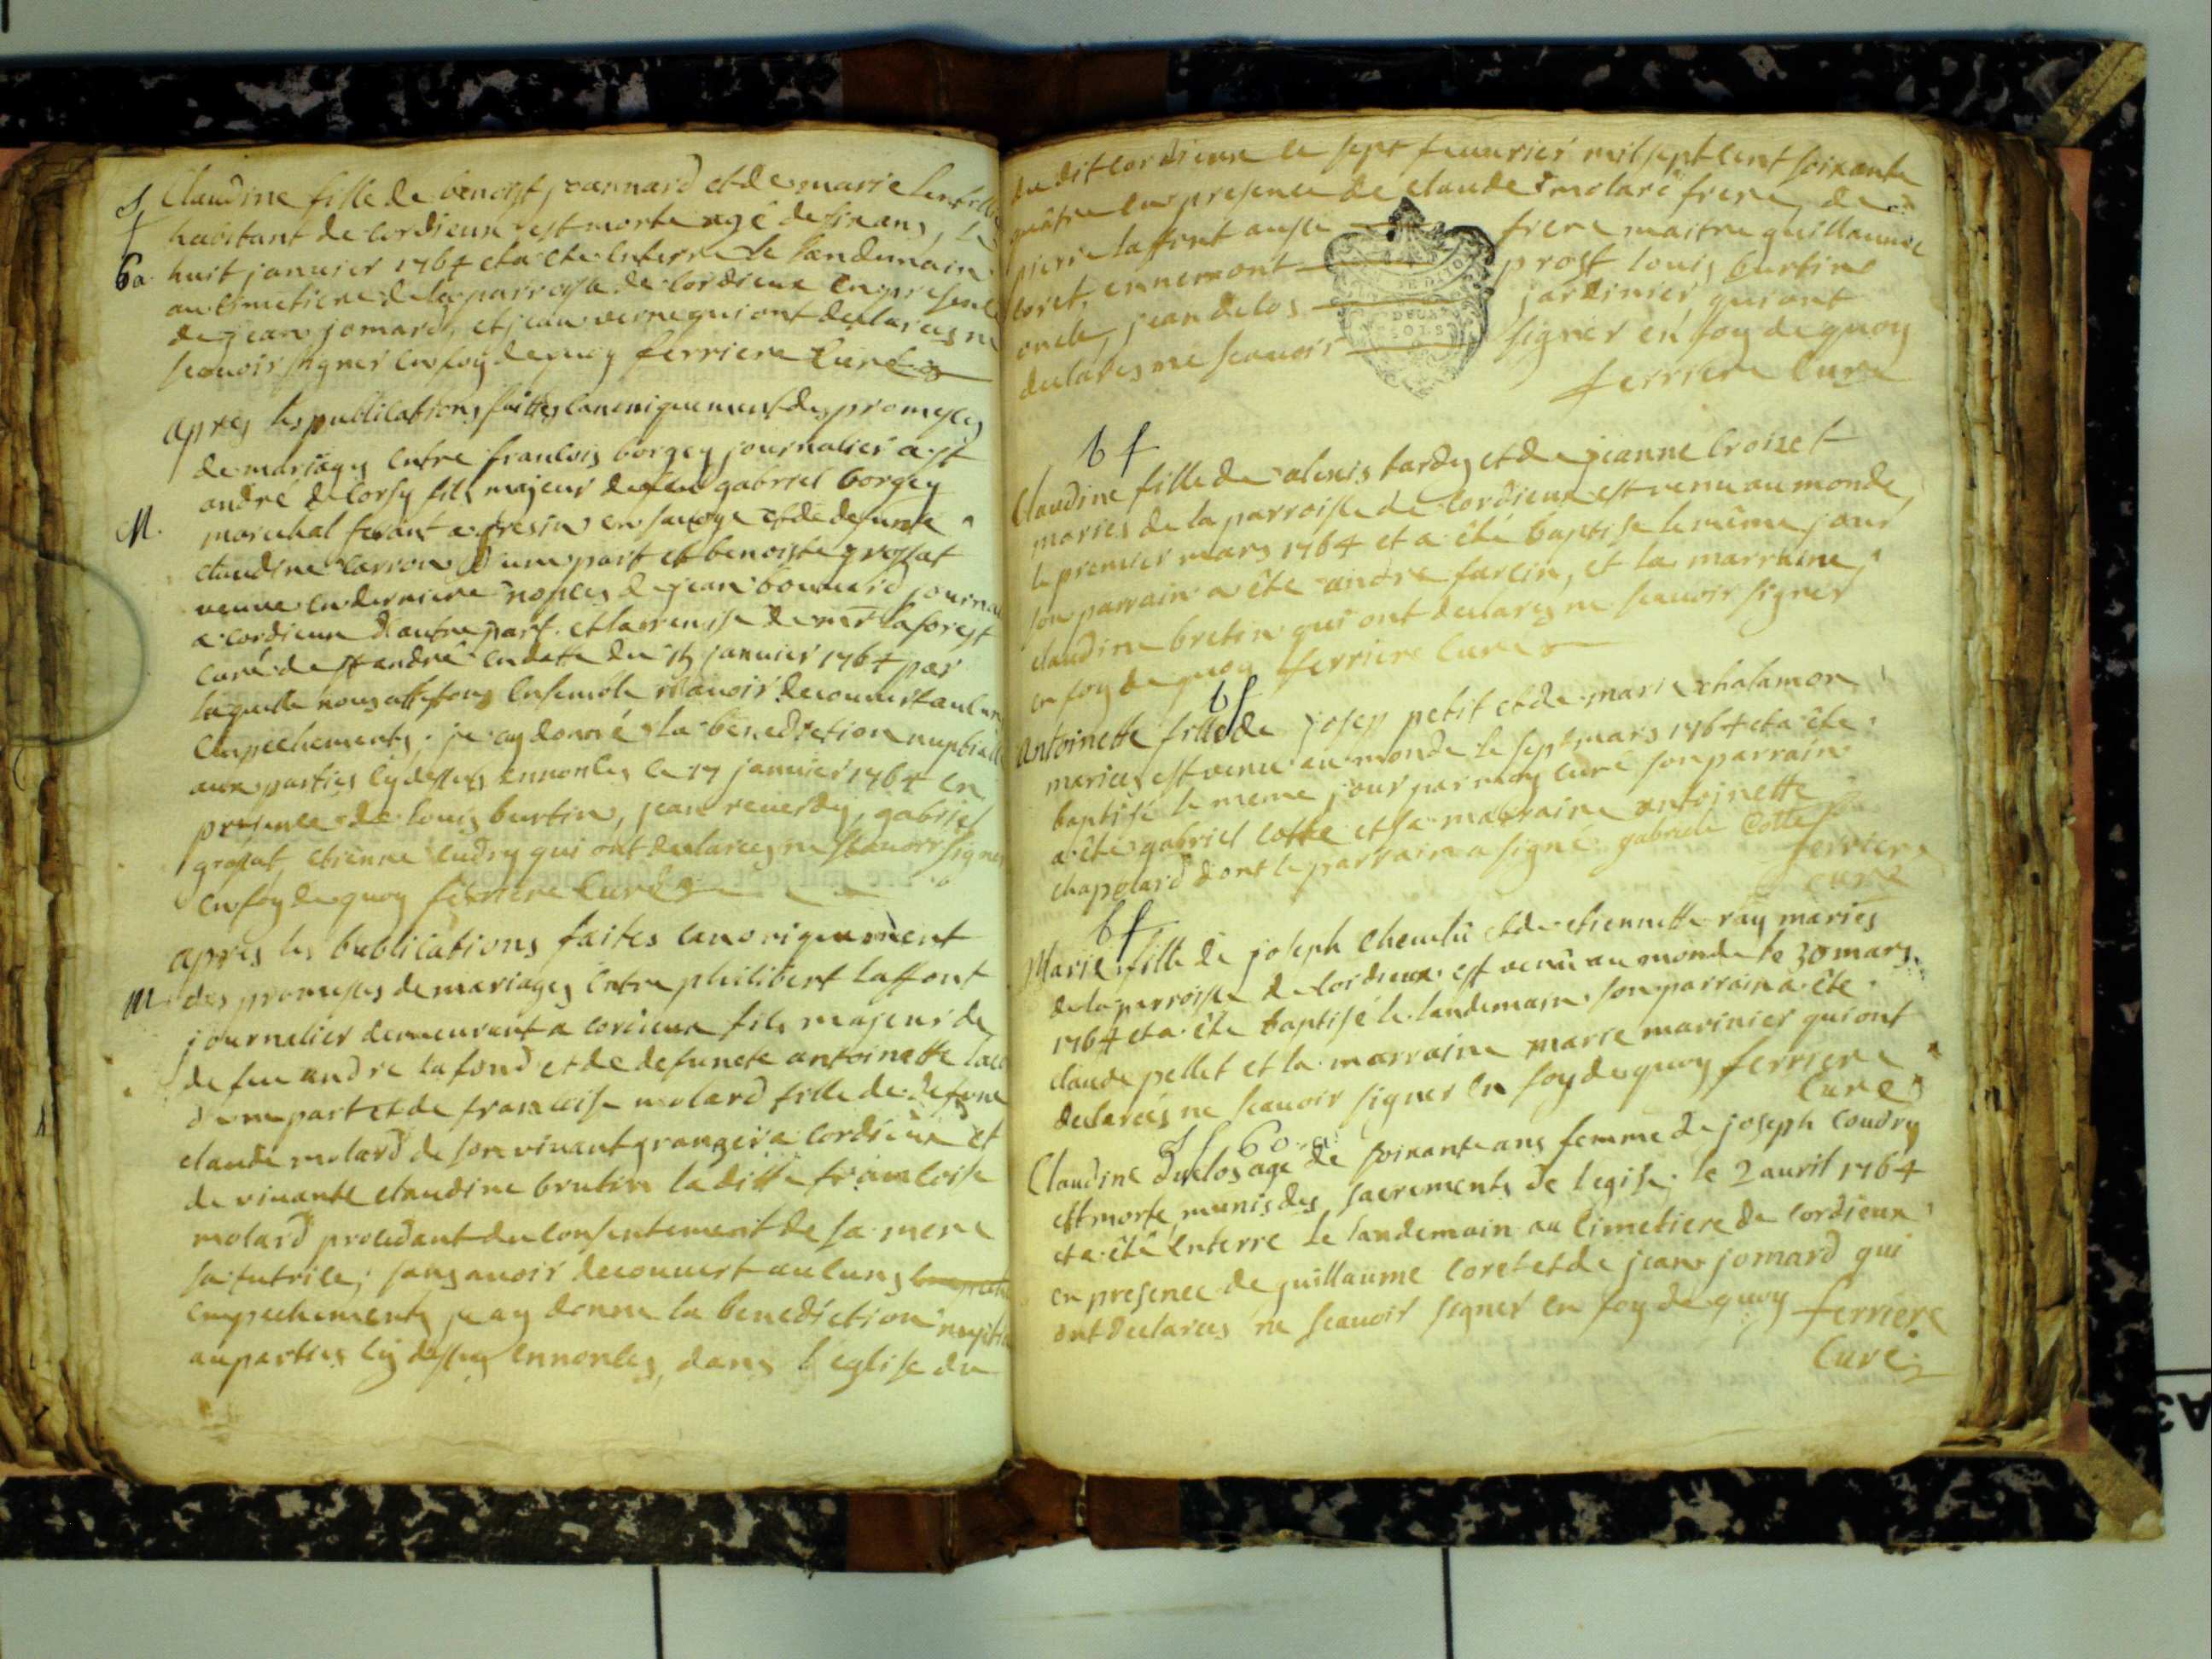 S
f
6a
Claudine fille de benoist joannard et de marie
habitant de Cordieux est morte agé de six ans, le
huit janvier 1764 et a ete Enterre le landemain
au cimetiere de la parroisse de Cordieux En presence
de jean jomard, et jean verne qui ont declares ne
scauoir signer En foy de quoy ferriere Curé
apres les publications faittes canoniquement des promesses
de mariages Entre francois borgey journalier a st
andré de Corsy fils majeur de feu gabriel borgey
M.
marechal ferant a fresin en sauoye et de defunte
claudine Carron d'une part et benoiste grossat
veuve En derniere nopces de jean journa
a cordieux d'autre part. et la remise de mr laforest
curé de st andré En datte du 15 janvier 1764 par
laquelle nous Ensemble n'auoir decouuert aucun
Empechements; je ay donné la benediction nuptialle
aux parties cy dessus Ennoncés le 17 janvier 1764 En
presence de louis burtin, jean reuerdy, gabriel
grossat, etienne cudry qui ont declares ne scauoir signer
En foy de quoy ferriere Curé
apres les bublications faites canoniquement
M
des promesses de mariages Entre philibert laffont
journalier demeurant a cordieux fils majeur de
de feu andre lafond et de defuncte antoinette
d'une part et de francoise molard fille de defunt
claude molard de son vivant granger a Cordieux et
de vivante claudine brutin la ditte francoise
molard procedant du Consentement de sa mere
sa tutrice; sans auoir decouuert aucuns
empechements je ay donne la benediction nuptia
au parties cy dessus Ennoncés, dans l'eglise du
du dit cordieux le sept feuurier mil sept cent soixante
quatre En presence de claude molard frere, de
pierre laffont aussi frere maitre guillaume
Coret, ennemont prost louis burtin
oncle, jean delos jardinier qui ont
declares ne scauoir signer en foy de quoy
DEUX
SOLS
ferriere Cure
b f
Claudine fille de alexis tardy et de jeanne Croizet
maries de la parroisse de Cordieux est venu au monde
le premier mars 1764 et a été baptise le même jour
son parrain a été andre farcin, et la marraine
claudine bretin qui ont declares ne scauoir signer
en foy de quoy ferriere Curé
b f
Antoinette fille de josep petit et de marie chalamon
maries est venu au monde le sept mars 1764 et a été
baptisé le meme jour par moy curé son parrain
a été gabriel cotte et sa marraine antoinette
chapolard dont le parrain a signé gabriele Cotte
ferriere
cure
b f
Marie fille de joseph et de etiennette ray maries
de la parroisse de Cordieux est venu au monde le 30 mars
1764 et a été baptisé le landemain son parrain a été
claude pellet et la marraine marie marinier qui ont
declarés ne scauoir signer En foy de quoy ferriere
Curé
S f 60 a
Claudine duclos agé de soixante ans femme de joseph Coudry
est morte munis des sacrements de l'egise; le 2 auril 1764
et a été Enterre le landemain au Cimetiere de Cordieux
en presence de guillaume Coret et de jean jomard qui
ont declares ne scauoir signer en foy de quoy ferriere
Curé
A3